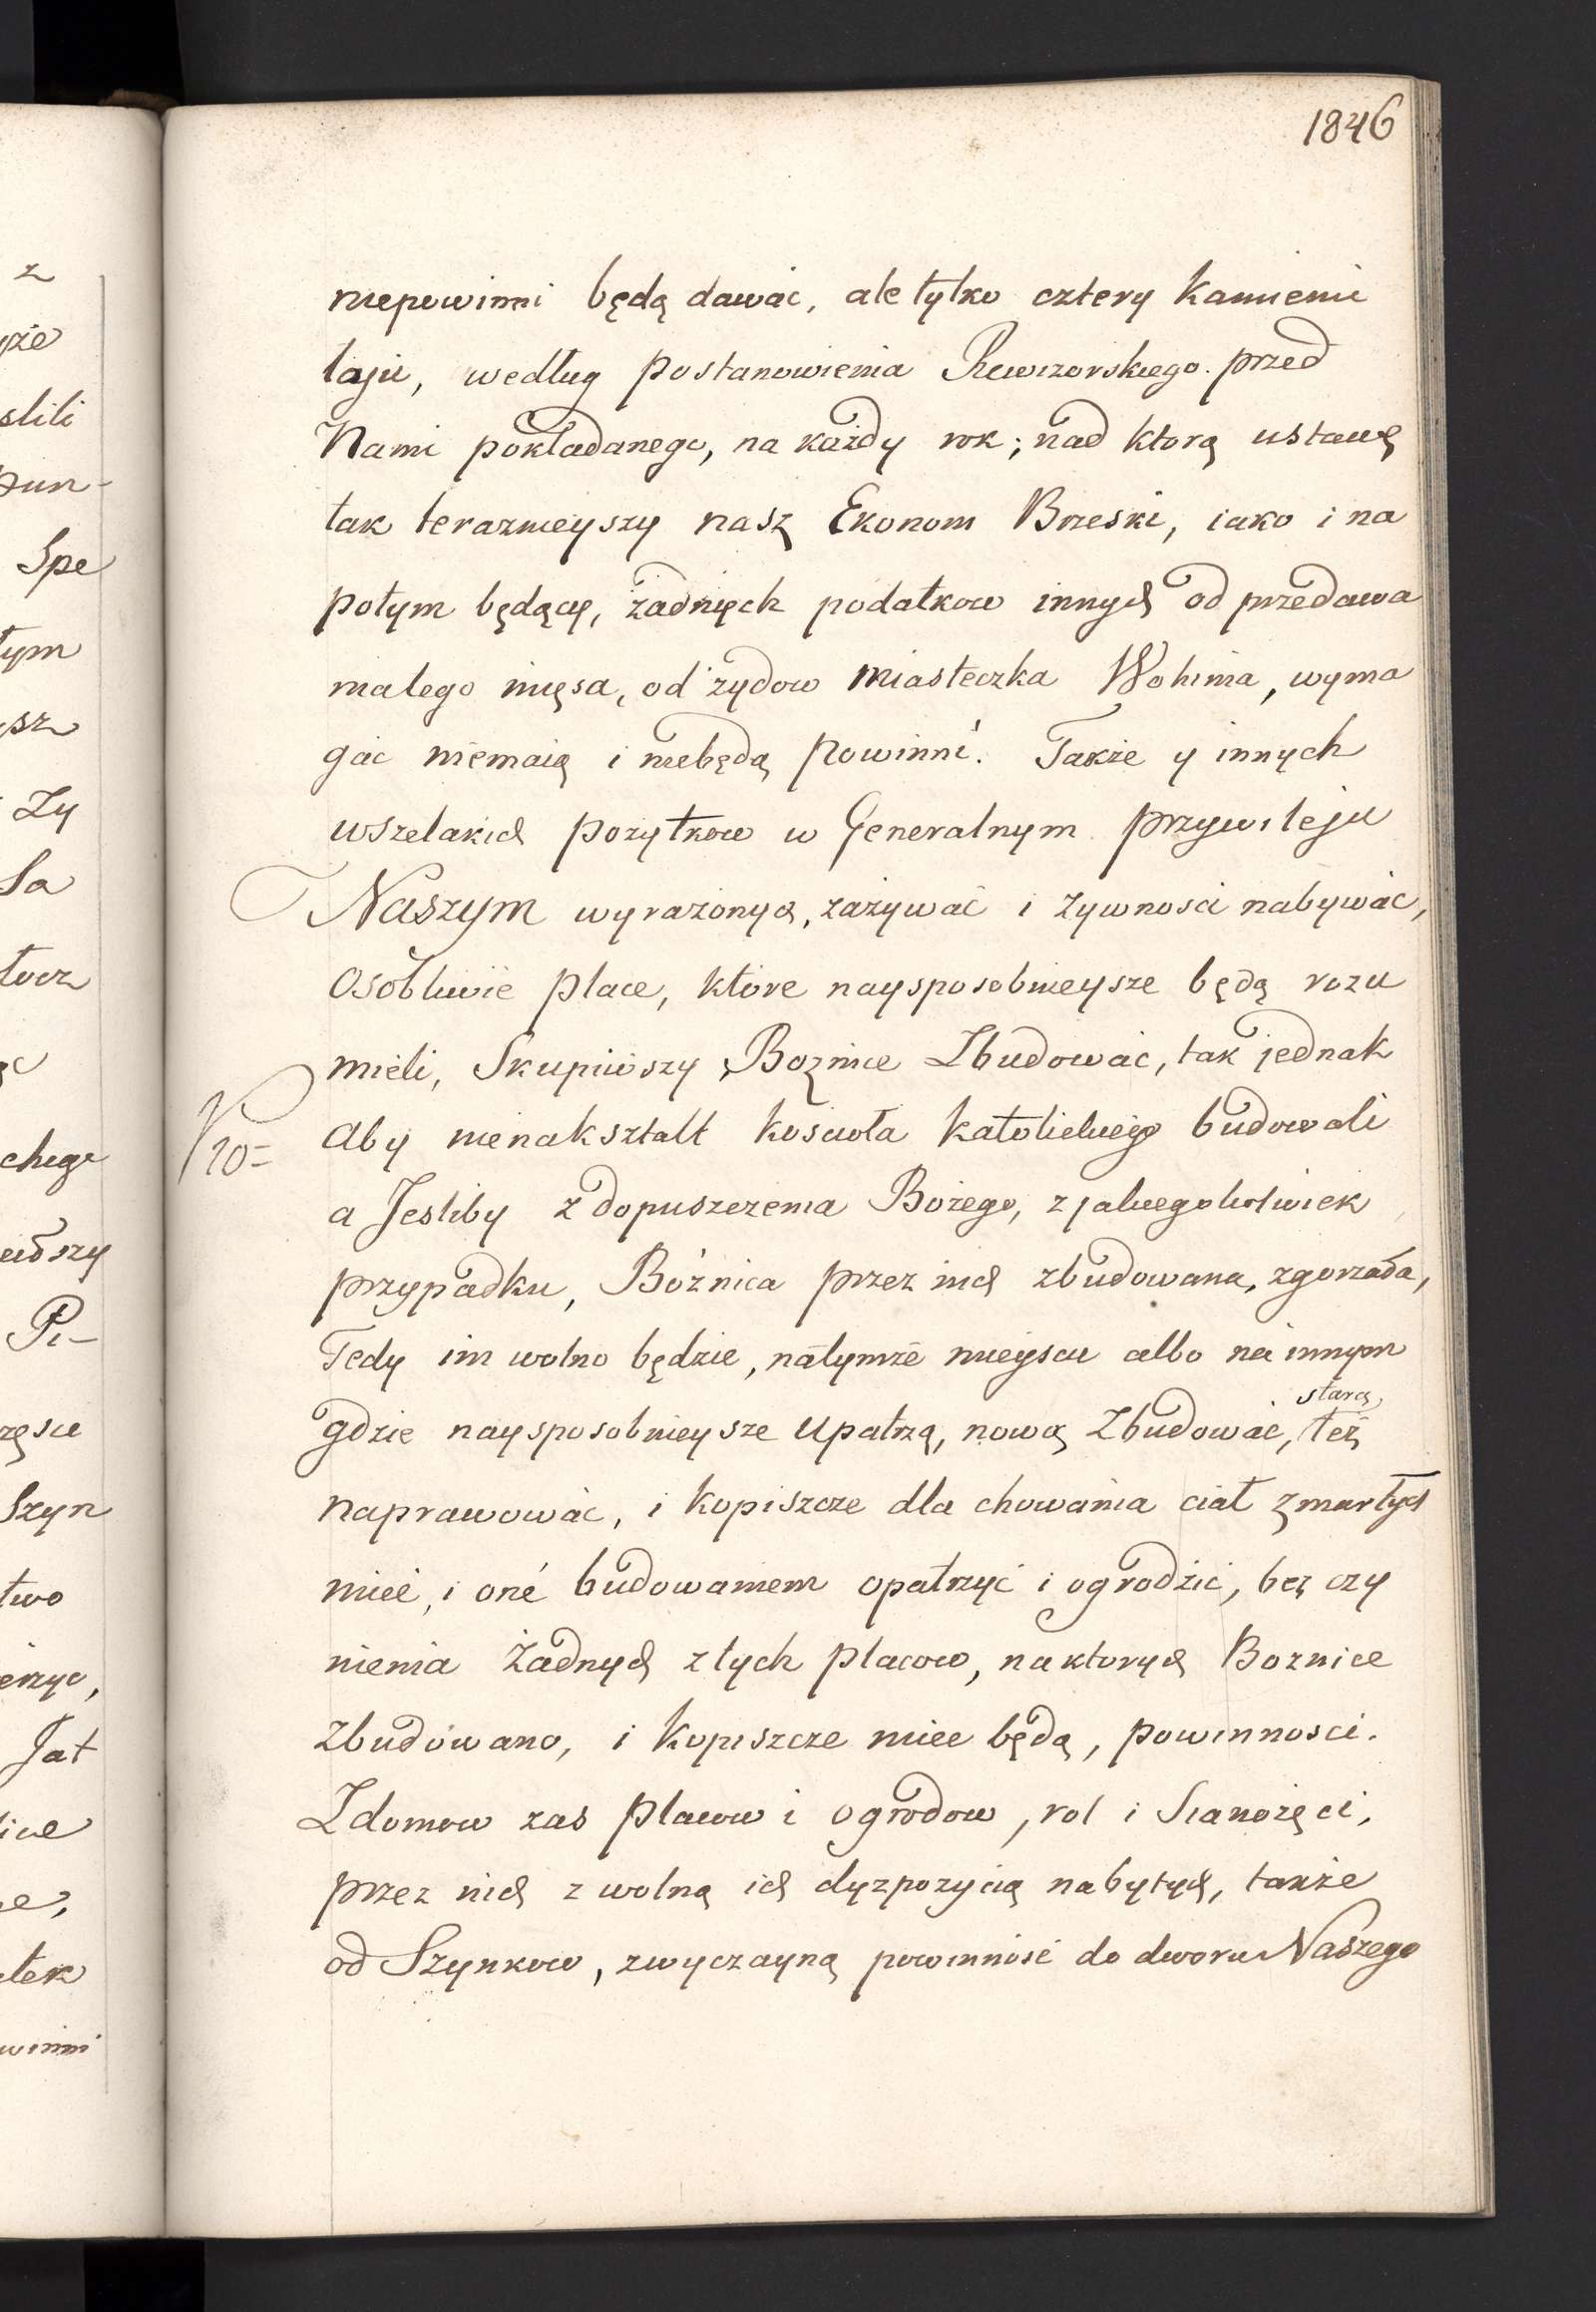 1846
niepowinni będą dawać, ale tylko cztery Kamienie
łaju, według postanowienia Rewizorskiego przed
Nami pokładanego, na każdy rok; nad ktorą ustawę
tak teraznieyszy nasz Ekonom Brzeski, iako i na
potym będący, żadnych podatkow innych od przedawa
niałego mięsa, od żydow miasteczka Wohinia, wyma
gać niemaią i niebędą powinni. Także y innych
wszelakich pożytkow w Generalnym przywileju
Naszym wyrażonych, zażywać i żywnosci nabywać,
Osobliwie place, które naysposobnieysze będą rozu
mieli, Skupiwszy, Boznice Zbudować, tak jednak
Aby nienakształt Kościoła katolickiego budowali
10=
a Jesliby z dopuszczenia Bożego, z jakiegokolwiek
przypadku, Bóżnica przez nich zbudowana, zgorzała,
Tedy im wolno będzie, natymże mieyscu albo na innym
gdzie naysposobnieysze upatrzą, nową Zbudować, też
starą
naprawować, i Kopiszcze dla chowania ciał zmarłych
mieć, i oné budowaniem opatrzyć i ogrodzić, bez czy
nienia Żadnych z tych placow, na ktorych Boznice
zbudówano, i Kopiszcze miec będą, powinnosci.
Z domow zas placow i ogrodow, rol i Sianożęci,
przez nich z wolną ich dyzpozycią nabytych, także
od Szynkow, zwyczayną powinność do dworu Naszego
z
slili
pun-
Spe
tym
sz
Zy
Sa
Pi-
Szyn
two
Jat
winni